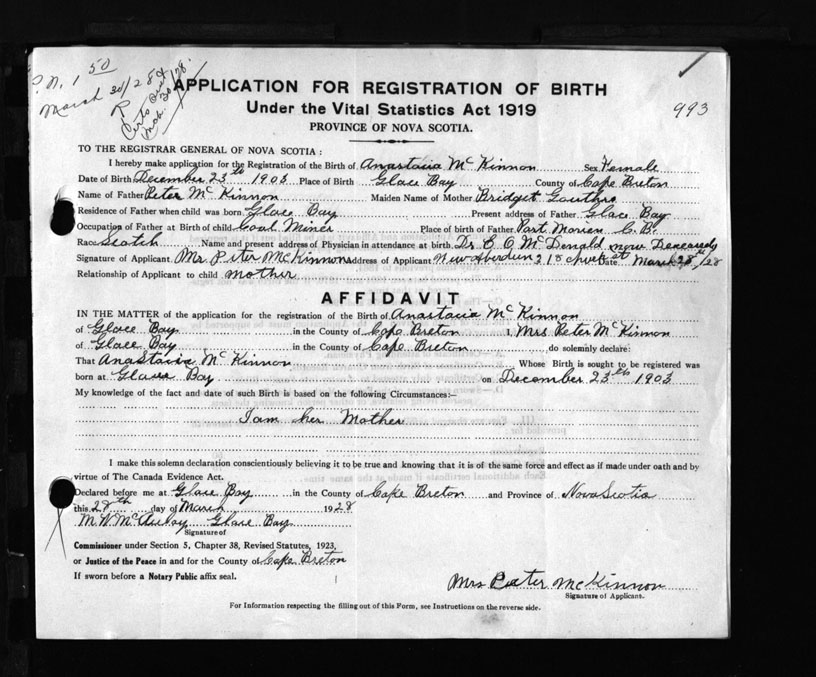 P.N. 1 50
March 30/28
R
APPLICATION FOR REGISTRATION OF BIRTH
Under the Vital Statistics Act 1919
993
PROVINCE OF NOVA SCOTIA.
TO THE REGISTRAR GENERAL OF NOVA SCOTIA :
I hereby make application for the Registration of the Birth of Anastacia McKinnon Sex Female
Date of Birth December 23th 1903 Place of Birth Glace Bay County of Cape Breton
Name of Father Peter McKinnon Maiden Name of Mother Bridget Gouthro
Residence of Father when child was born Glace Bay Present address of Father Glace Bay
Occupation of Father at Birth of child Coal Miner Place of birth of Father Port Morien C.B.
Race Scotch Name and present address of Physician in attendance at birth Dr McDonald now Deceased
Signature of Applicant Mrs Peter McKinnon Address of Applicant New Aberdeen 218 Date March 28th/28
Relationship of Applicant to child mother
AFFIDAVIT
IN THE MATTER of the application for the registration of the Birth of Anastacia McKinnon
of Glace Bay in the County of Cape Breton I, Mrs Peter McKinnon
of Glace Bay in the County of Cape Breton , do solemnly declare:
That Anastacia McKinnon Whose Birth is sought to be registered was
born at Glace Bay on December 23th 1903
My knowledge of the fact and date of such Birth is based on the following Circumstances:—
I am her Mother
I make this solemn declaration conscientiously believing it to be true and knowing that it is of the same force and effect as if made under oath and by
virtue of The Canada Evidence Act.
Declared before me at Glace Bay in the County of Cape Breton and Province of Nova Scotia
this 28th day of March 1928
M.W. McAulay Glace Bay
Signature of
Commissioner under Section 5, Chapter 38, Revised Statutes, 1923,
or Justice of the Peace in and for the County of Cape Breton
If sworn before a Notary Public affix seal.
Mrs Peter McKinnon
Signature of Applicant.
For Information respecting the filling out of this Form, see Instructions on the reverse side.